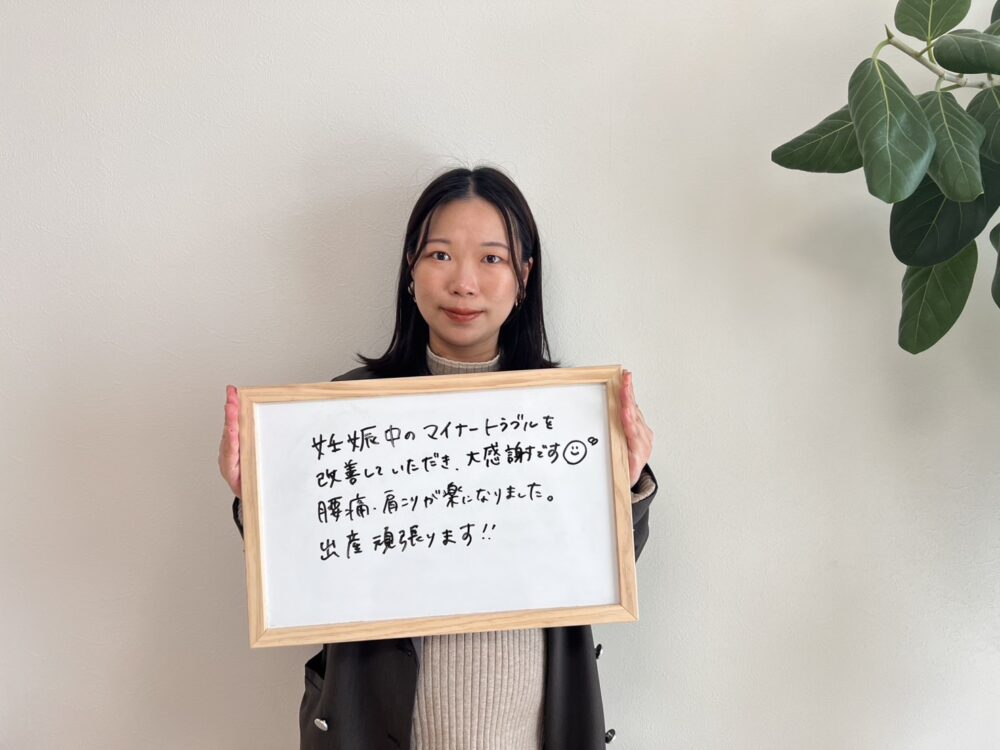 妊娠中のマイナートラブルを
改善していただき、大感謝です
腰痛・肩こりが楽になりました。
出産頑張ります!!